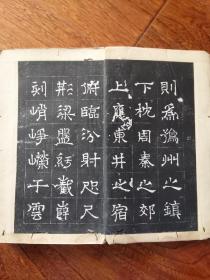 則為豫州之鎮
下枕周秦之郊
上應東井之宿
俯臨汾射咫尺
荊梁盤紆巀嶭
刻峭崢嶸干雲